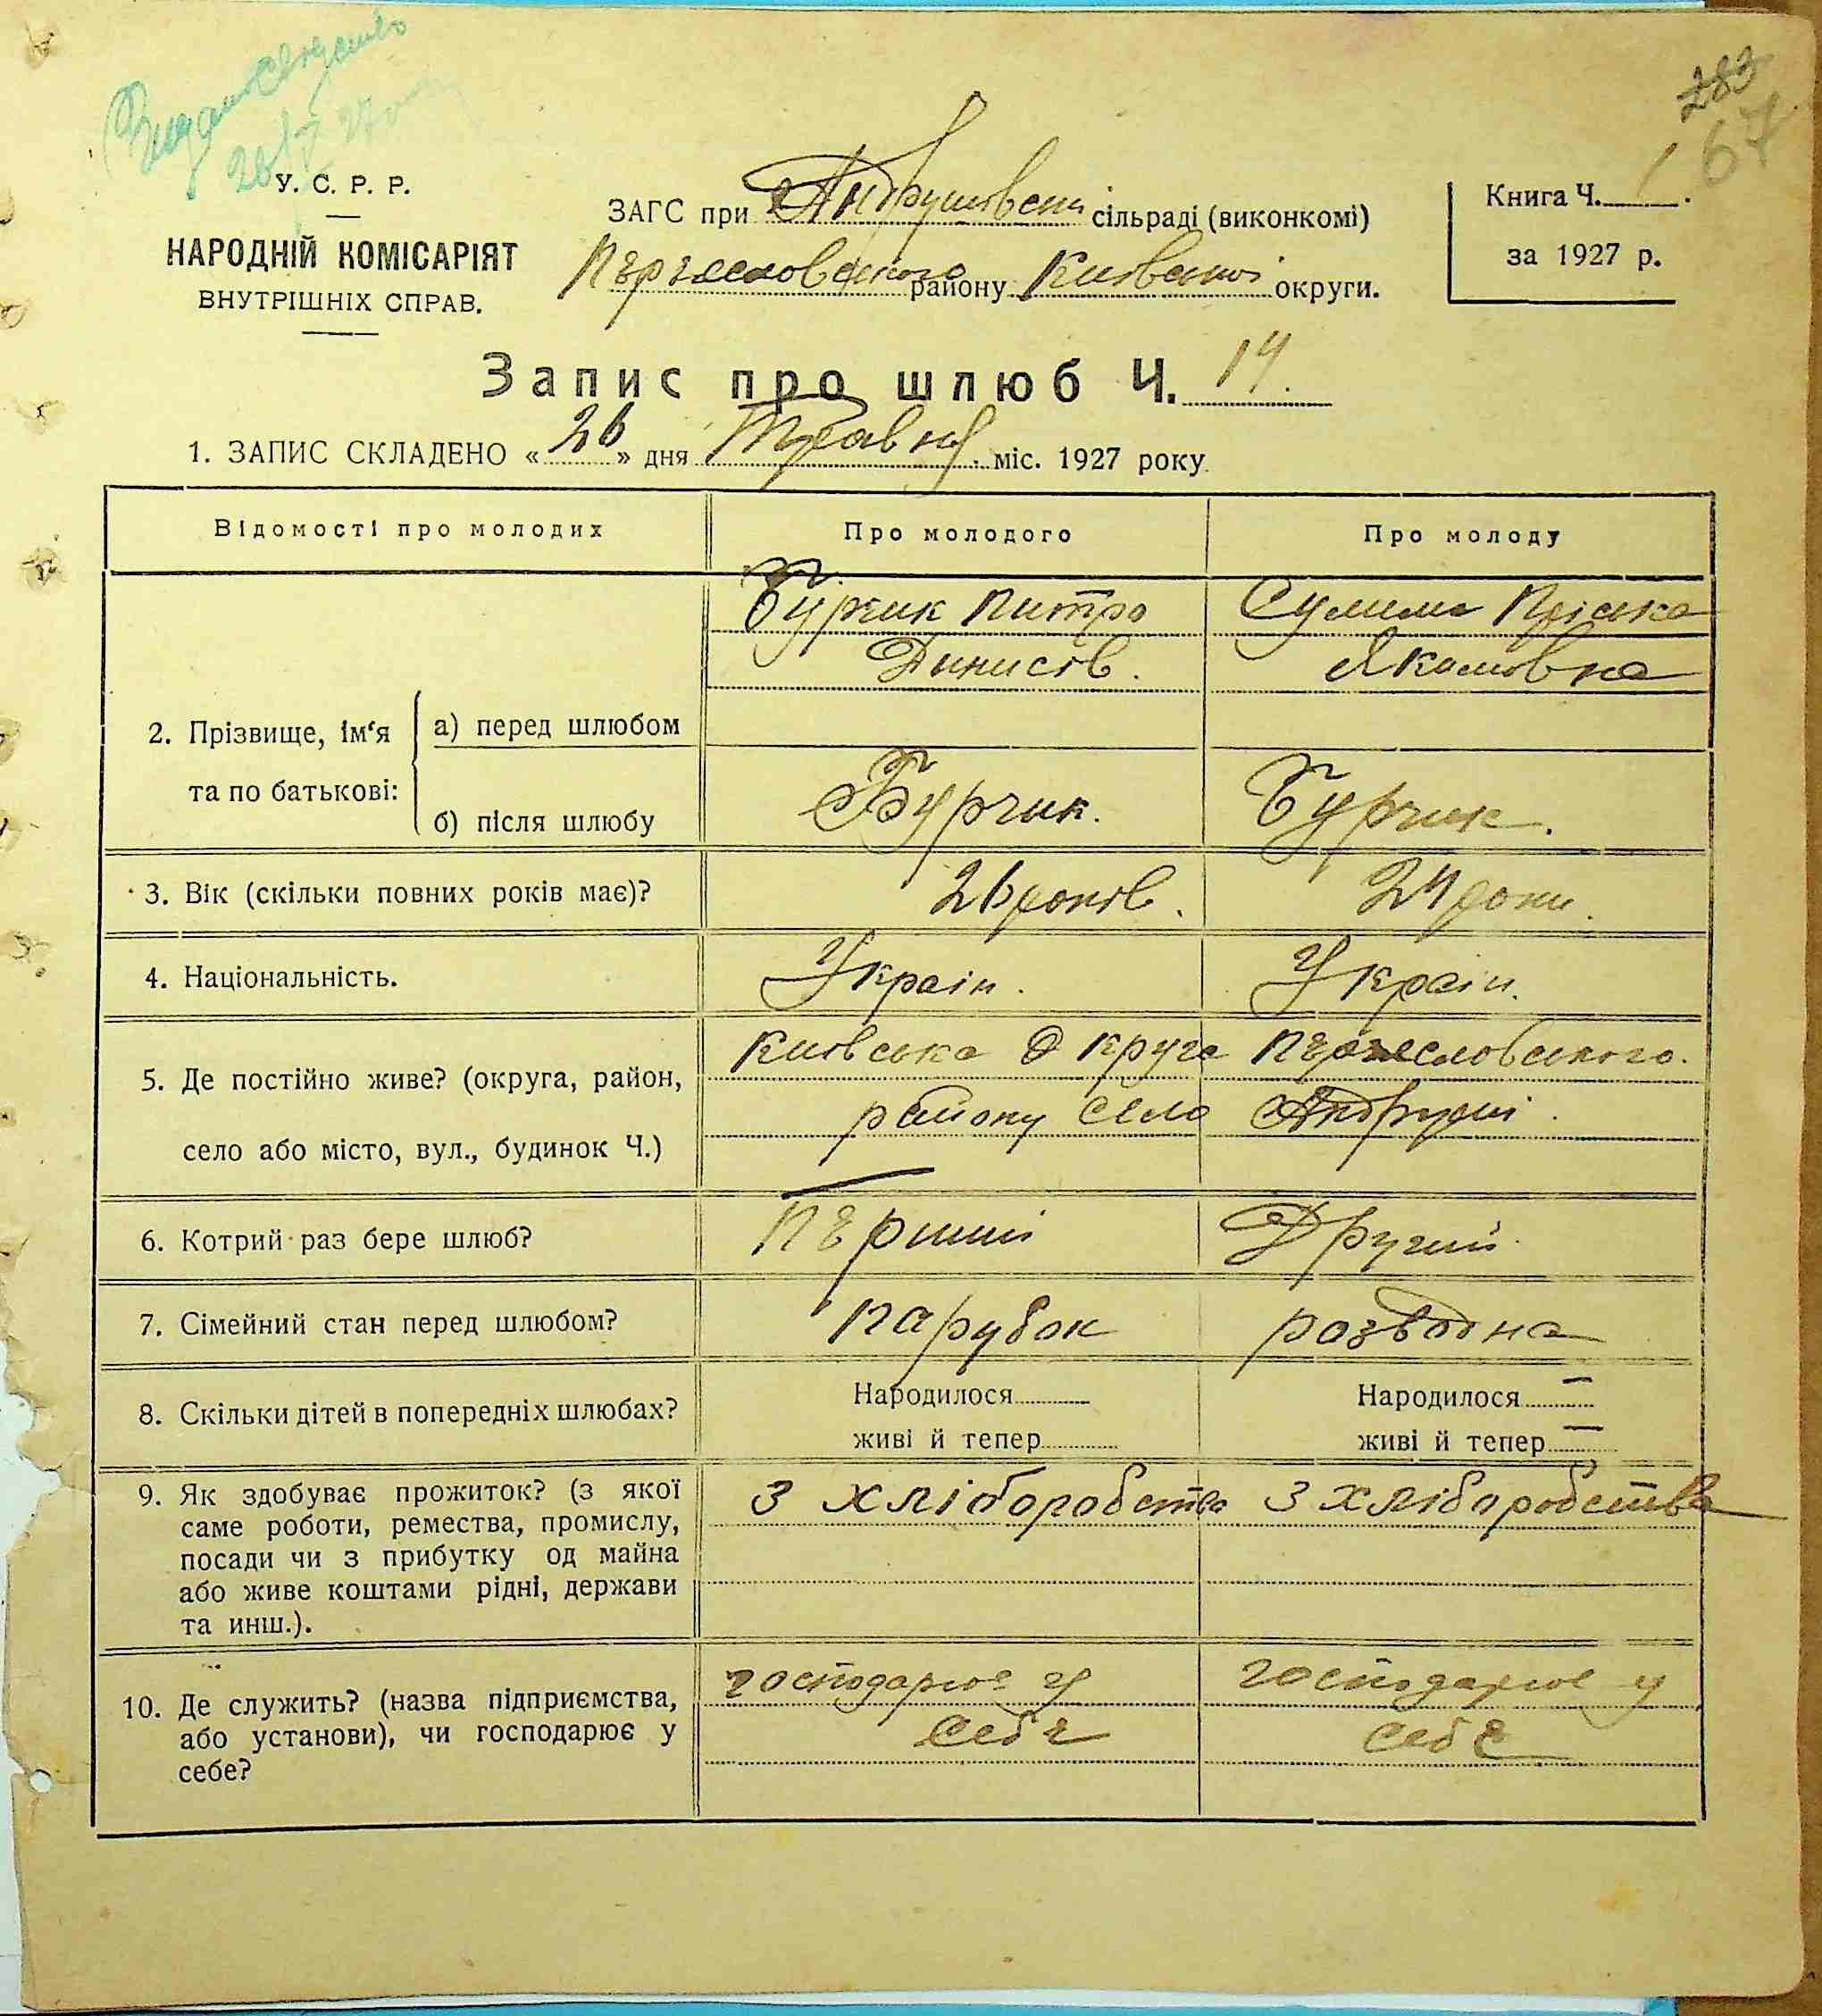 Видано свідоцтво
26/V 27 року
283
67
У. С. Р. Р.
НАРОДНІЙ КОМІСАРІЯТ
ВНУТРІШНІХ СПРАВ.
ЗАГС при Андрушовській сільраді (виконкомі)
Переясловського району Київської округи.
Книга Ч.
за 1927 р.
Запис про шлюб Ч. 14.
1. ЗАПИС СКЛАДЕНО « 26 » дня Травня міс. 1927 року
Відомості про молодих
Про молодого
Про молоду
2. Прізвище, ім‘я та по батькові:
а) перед шлюбом
Бурчик Питро
Динисів.
Сулима Пріська
Якимовна
б) після шлюбу
Бурчик.
Бурчик.
3. Вік (скільки повних років має)?
26 років.
24 роки.
4. Національність.
Україн.
Україн.
5. Де постійно живе? (округа, район,
село або місто, вул., будинок Ч.)
Київська Округа Переясловського.
району село Андруші.
6. Котрий раз бере шлюб?
Перший
Другий
7. Сімейний стан перед шлюбом?
парубок
розводна
8. Скільки дітей в попередніх шлюбах?
Народилося
живі й тепер
Народилося —
живі й тепер —
9. Як здобуває прожиток? (з якої
саме роботи, ремества, промислу,
посади чи з прибутку од майна
або живе коштами рідні, держави
та инш.).
З хліборобства
З хліборобства
10. Де служить? (назва підприємства,
або установи), чи господарює у
себе?
господарює у
себе
господарює у
себе